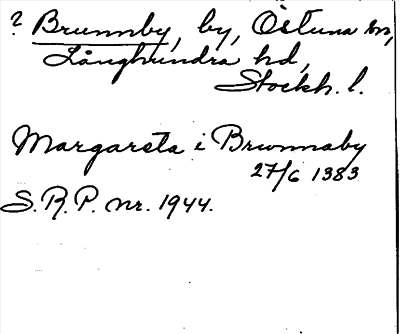 ? Brunnby, by, Östuna sn,
Långhundra hd,
Stockh. l.
Margareta i Brunnaby
27/6 1383
S.R.P. nr. 1944.